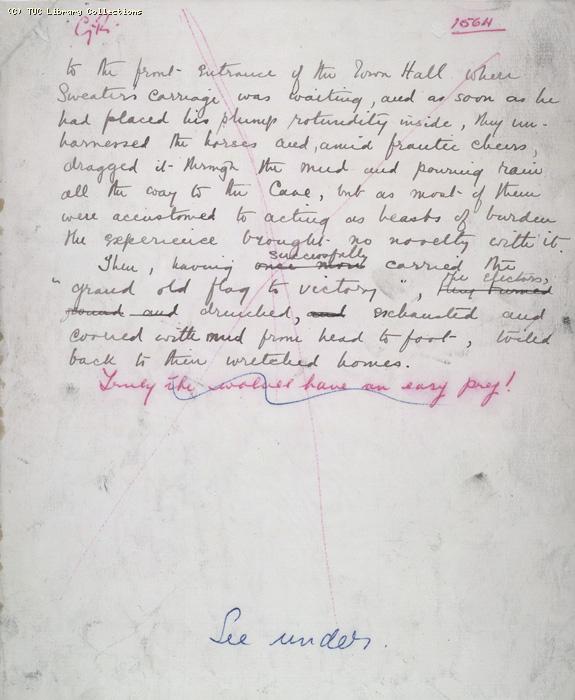 (C) TUC Library Collections
1564
to the front entrance of the Town Hall where
Sweaters carriage was waiting, and as soon as he
had placed his plump rotundity inside, they un-
harnessed the horses and, amid frantic cheers,
dragged it through the mud and pouring rain
all the way to the Cave, but as most of them
were accustomed to acting as beasts of burden
the experience brought no novelty with it.
successfully
Then, having once more carried the
the electors,
"grand old flag to victory", they turned
round and drenched, and exhausted and
covered with mud from head to foot, toiled
back to their wretched homes.
Truly the wolves have an easy prey!
See under.